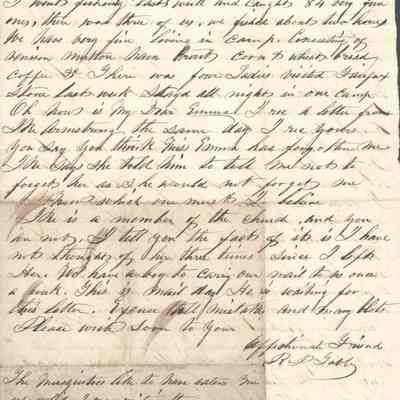 I went fishing last week and caught 84 very fine
ones, there was three of us, we fished about two hours
We have very fine living in camp. Consisting of
venison mutton ham trout corn & wheat bread
coffee &c There was four Ladies visited Fairfax
Stone last week Stayed all night in our camp
Oh how is My Dear Emma I rec a letter from
Ike Armstrong the same day I rec yours
You say you think Miss Emma has forgotten me
Ike says she told him to tell me not to
forget her as she would not forget me
which one must I believe
She is a member of the church, and you
are not. I tell you the fact of it is I have
not thought of my three times since I left
Her. We have a boy to cary our mail to us once
a week. This is mail day He is waiting for
this letter. Excuse all mistakes and many blots
Please write soon to your
affectionate Friend
R. S.
The Musquitoes like to have eaten me